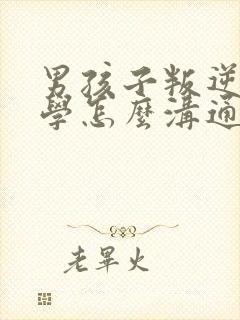 男孩子叛逆
學怎麼溝通
老畢火